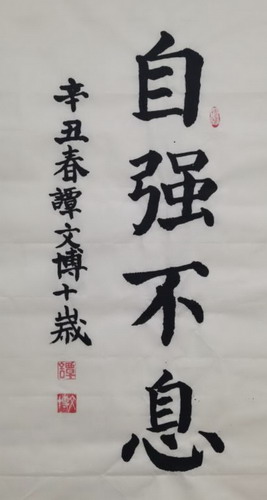 自强不息
辛丑春譚文博十歲